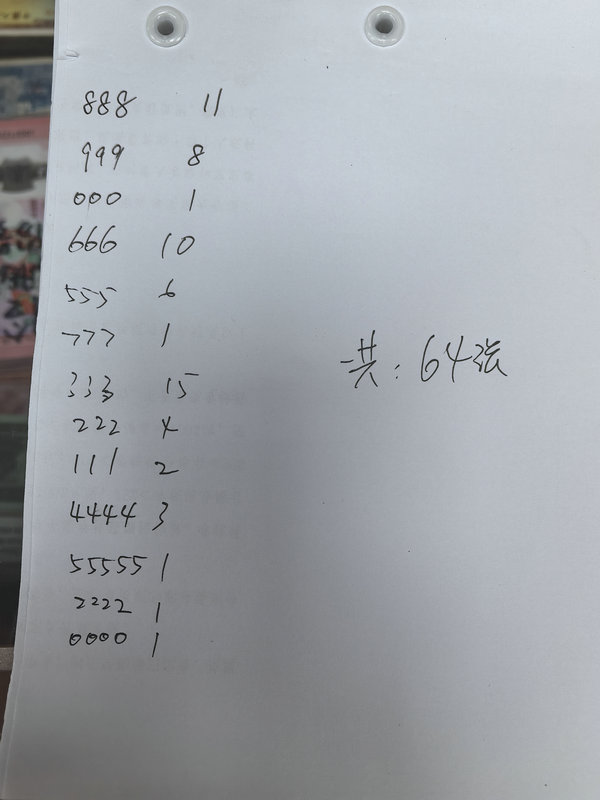 888 11
999 8
000 1
666 10
555 6
777 1
333 15
222 4
111 2
4444 3
55555 1
2222 1
0000 1
一共：64张